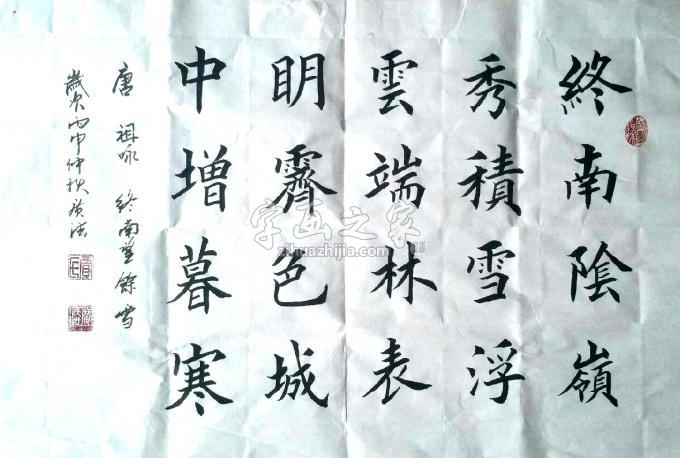 終南陰嶺
秀積雪浮
雲端林表
明霽色城
中增暮寒
唐 祖咏 終南望餘雪
歲次丙申仲秋
字画之家
zihuazhijia.com